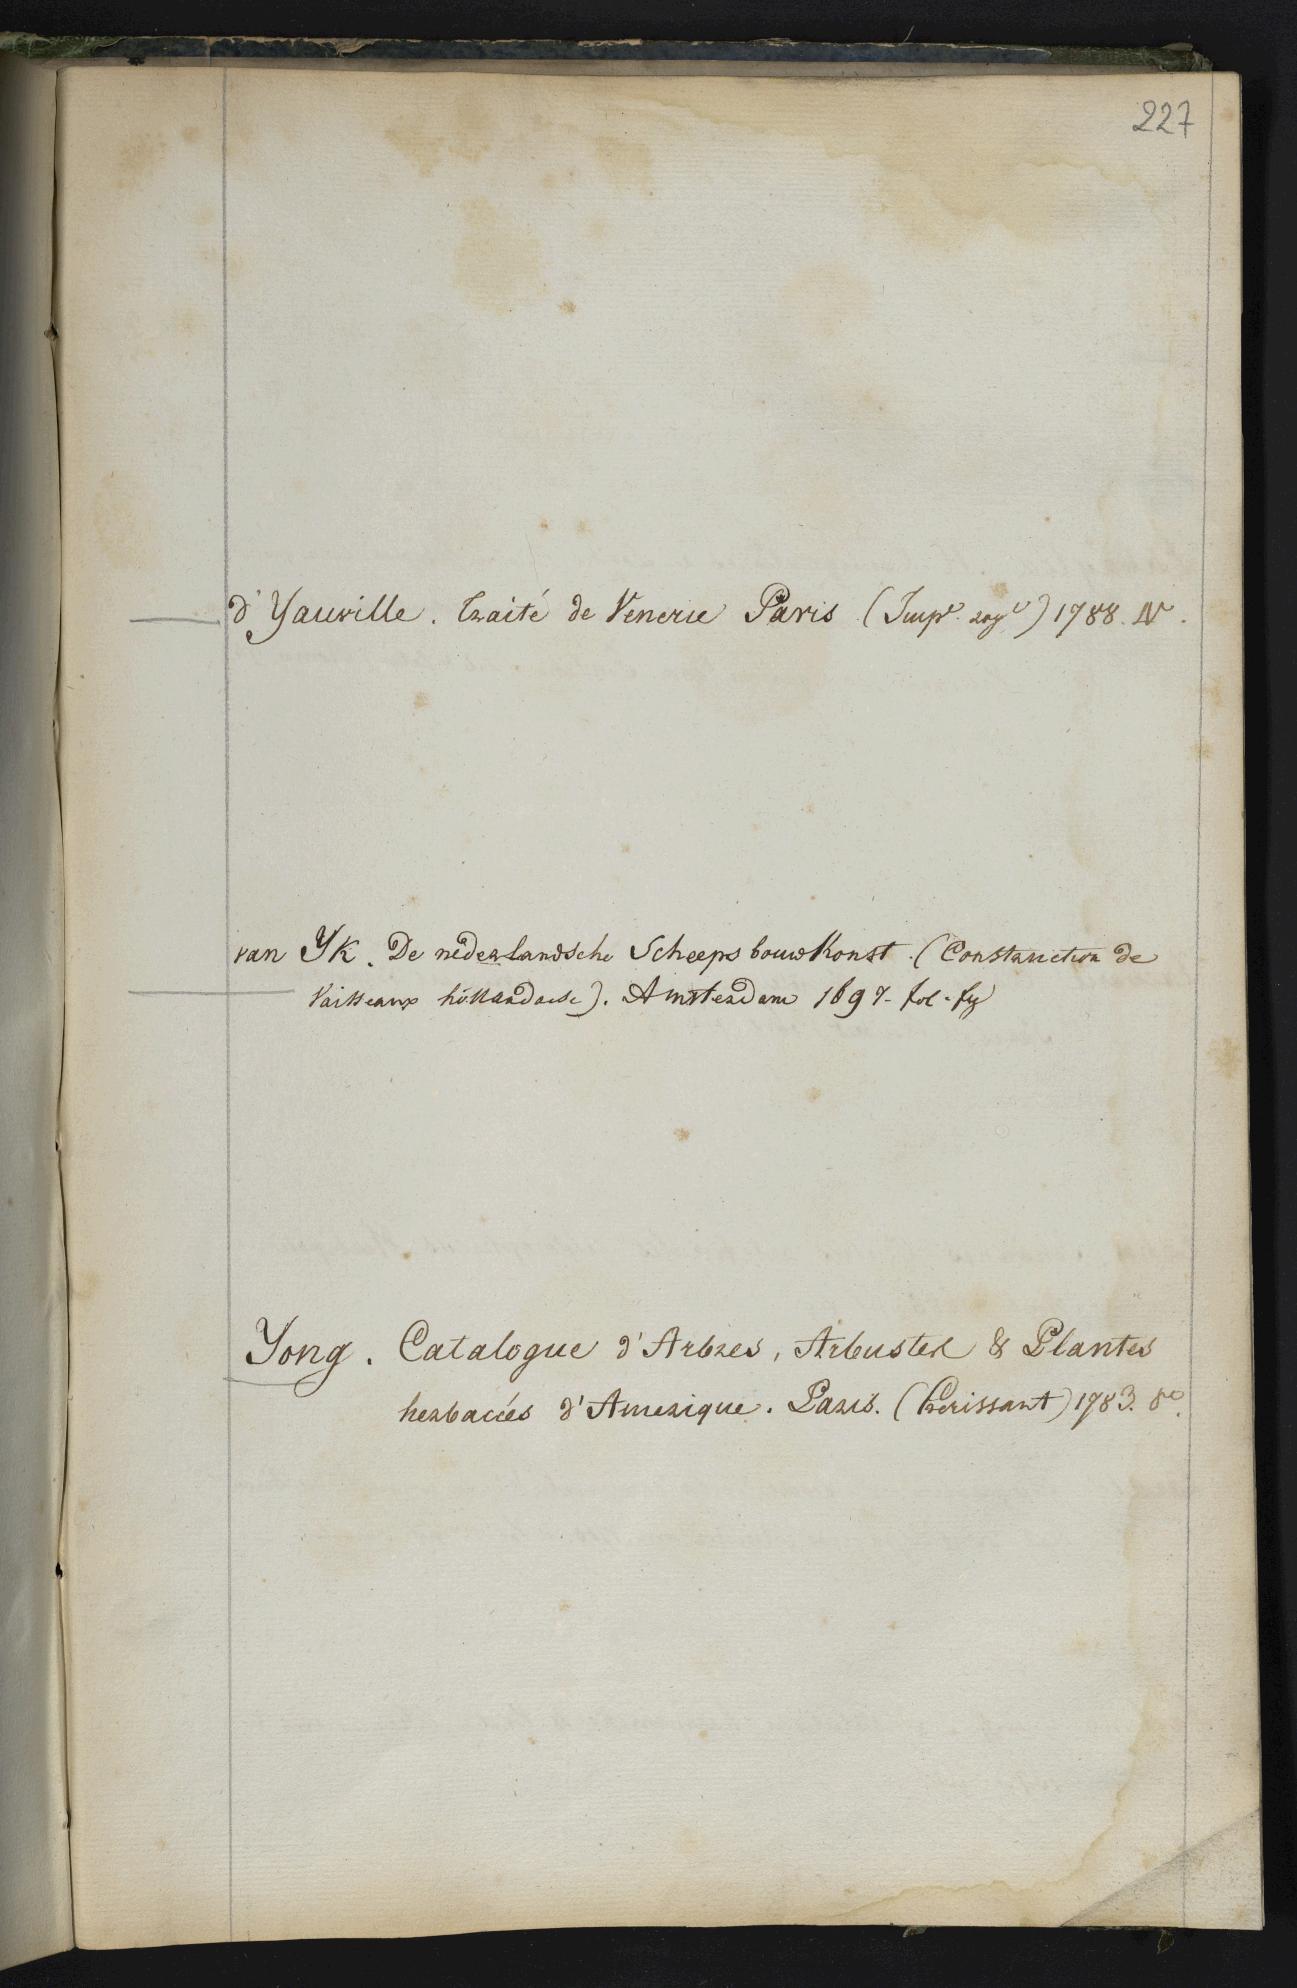 227
d'Yauville. Traité de Venerie Paris (Impe. roye) 1788. IVo.
van YK. De nederlandsche Scheeps bouwkonst. (Construction de
Vaisseaux hollandaise). Amsterdam 1697. fol. fig
Yong. Catalogue d'Arbres, Arbustes & Plantes
herbacées d'Amerique. Paris. 1783. 8o.